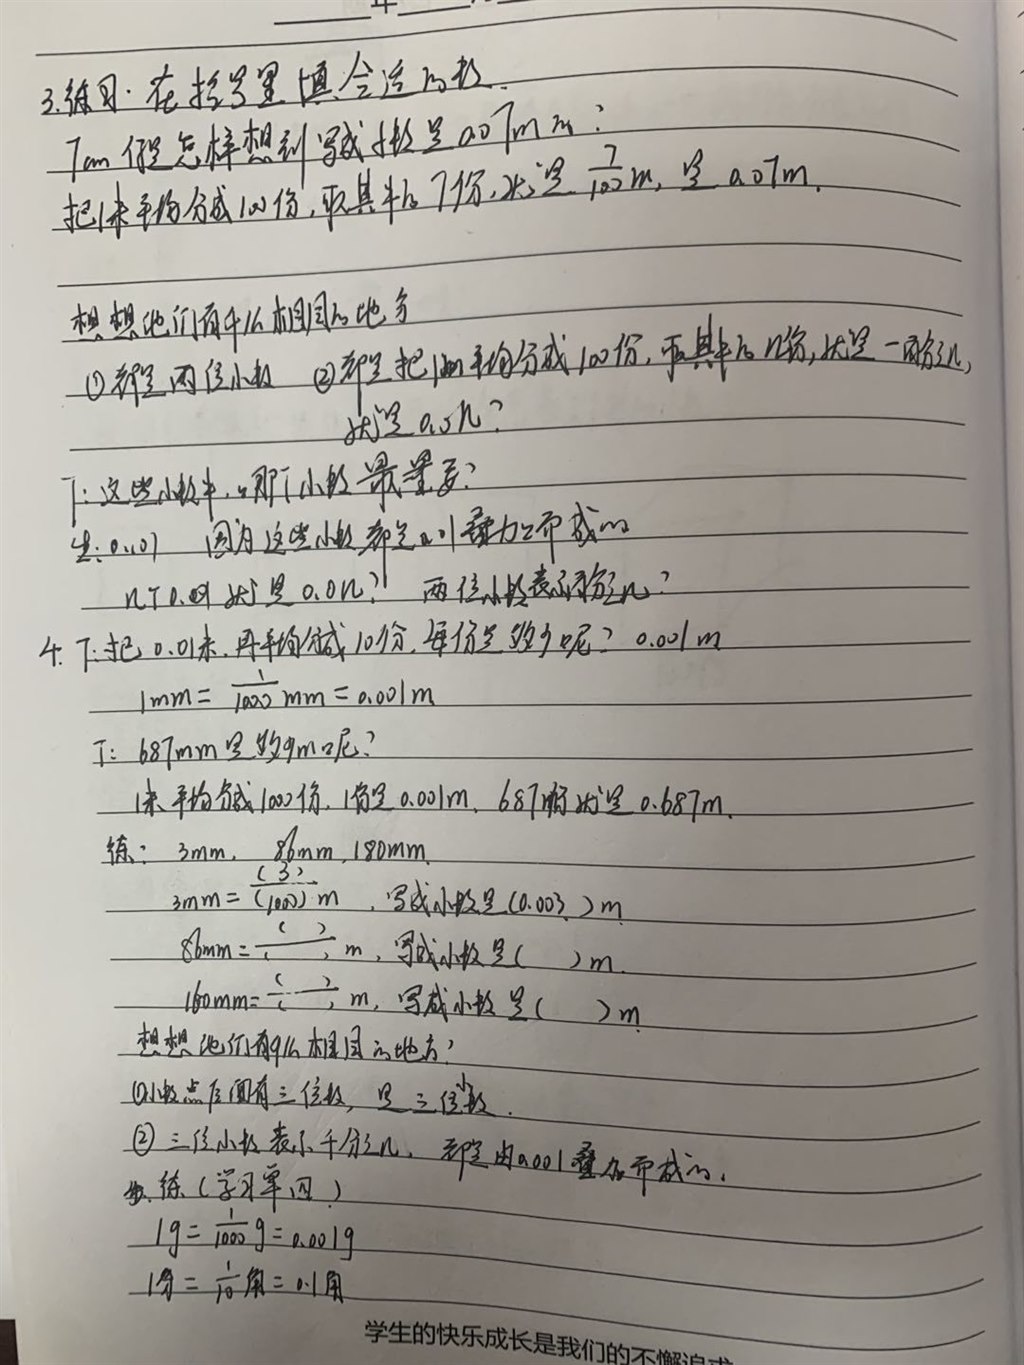 年
3.练习.在括号里填合适的数.
7cm 你是怎样想到写成小数是0.07m的?
把1米平均分成100份,取其中的7份,就是 7/100 m,是0.07m.
想想他们有什么相同的地方
①都是两位小数 ②都是把1m平均分成100份,取其中的几份,就是一百分之几,
就是0.0几?
T:这些小数中,哪个小数最重要?
生:0.01 因为这些小数都是0.01叠加而成的
几个0.01就是0.0几? 两位小数表示百分之几?
4. T:把0.01米,再平均分成10份,每份是多少呢? 0.001m
1mm = 1/1000 mm = 0.001m
T: 687mm是多少m呢?
1米平均分成1000份,1份是0.001m, 687份就是0.687m.
练: 3mm, 86mm, 180mm.
3mm = (3)/(1000) m ,写成小数是(0.003 )m
86mm = ( )/( ) m ,写成小数是( )m.
160mm = ( )/( ) m, 写成小数是( )m
想想他们有什么相同的地方?
①小数点后面有三位数, 是三位小数.
② 三位小数表示千分之几, 都是由0.001叠加而成的.
练(学习单四)
1g = 1/1000 g = 0.001g
1分 = 1/10 角 = 0.1角
学生的快乐成长是我们的不懈追求